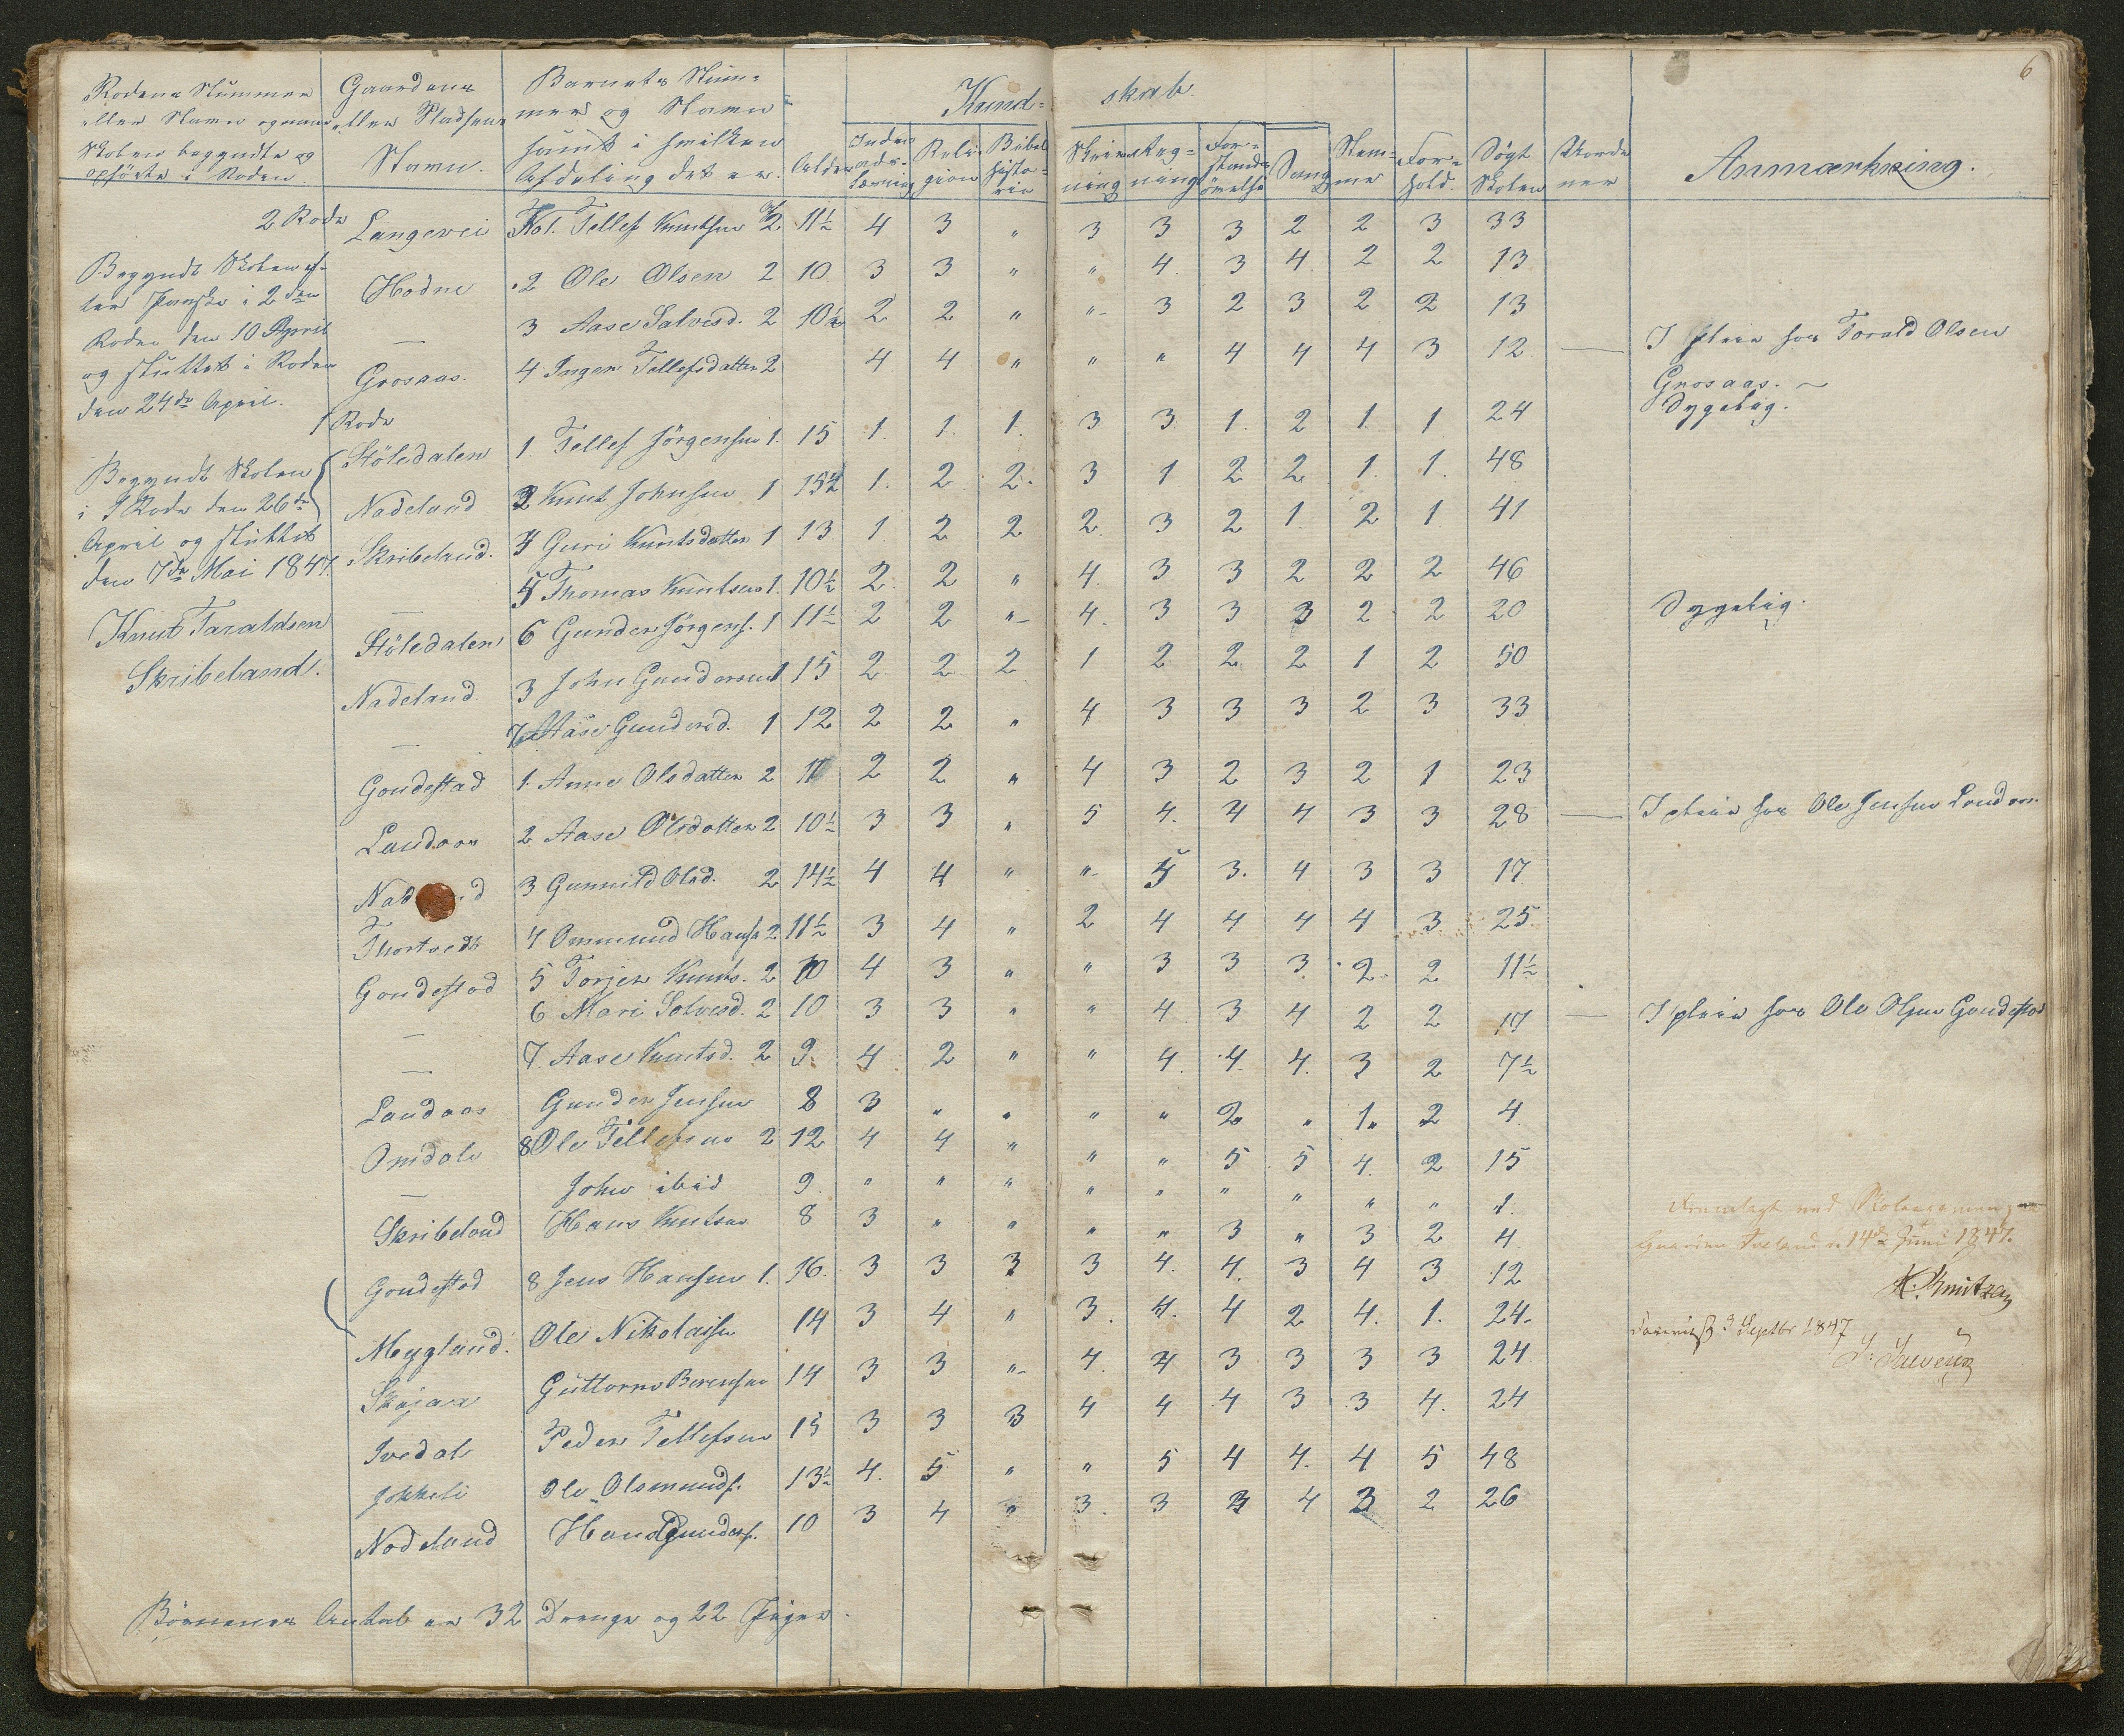 6
Rodens Nummer
eller Navn og naar
Skolen begyndte og
opførte i Roden.
Gaardens
eller Pladsens
Navn.
Barnets Num-
mer og Navn
samt i hvilken
Afdeling det er.
Alder
Kund- skab.
Inden-
ads-
læsning
Reli-
gion
Bibel
histo-
rie
Skriv-
ning
Reg-
ning
For-
stands
øvelse
Sang
Nem-
me
For-
hold.
Søgt
Skolen
Anmærkning.
2 Rode
Langevei Tellef Knutsen 2 11½ 4 3 " 3 3 3 2 2 3 33
Begyndt Skolen ef-
ter Paaske i 2den
Roden den 10 April
og sluttet i Roden
den 24de April.
Hodne 2 Ole Olsen 2 10 3 3 " " 4 3 4 2 2 13
— 3 Aase Salvesd. 2 10½ 2 2 " " 3 2 3 2 2 13
Grosaas. 4 Inger Tellefsdatter 2 4 4 " " " 4 4 4 3 12 — I pleie hos Torald Olsen
Grosaas. ~
1 Rode
Stöledalen 1. Tellef Jörgensen 1. 15 1. 1. 1. 3 3 1. 2 1. 1 24 Sygelig.
Begyndt Skolen
i 1 Rode den 26de
April og sluttet
den 7de Mai 1847.
Nadeland 2 Knut Johnsen 1 15½ 1. 2 2. 3 1 2 2 1. 1. 48
Skribeland. 4 Guri Knutsdatter 1 13 1. 2 2 2 3 2 1. 2 1 41
— 5 Thomas Knutsen 1. 10½ 2 2 " 4. 3 3 2 2 2 46
Knut Taraldsen
Skribeland.
Stöledalen 6 Gunder Jörgens. 1 11½ 2 2 " 4. 3 3 3 2 2 20 Sygelig.
Nadeland 3 John Gundersen 1 15 2 2 2 1 2 2 2 1 2 50
— 7 Aase Gundersd. 1 12 2 2 " 4 3 3 3 2 3 33
Goudestad 1. Anne Olsdatter 2 11 2 2 " 4 3 2 3 2 1 23
Landaas 2 Aase Olsdatter 2 10½ 3 3 " 5 4. 4 4 3 3 28 — I pleie hos Ole Jensen Landaas.
3 Gunnild Olsd. 2 14½ 4 4 " " 5 3. 4 3 3 17
Thortvedt 4 Ommund Hans. 2 11½ 3 4 " 2 4 4 4 4 3 25
Goudestad 5 Torjer Knuts. 2 10 4 3 " " 3 3 3 2 2 11½
— 6 Mari Solvesd. 2 10 3 3 " " 4 3 4 2 2 17 — I pleie hos Ole Olsen Goudestad
— 7. Aase Knutsd. 2 9. 4 2 " " 4. 4. 4. 3 2 7½
Landaas Gunder Jensen 8 3 " " " " 2 " 1 2 4
Omdale 8 Ole Tellefsen 2 12 4 4 " " " 5 5 4. 2 15
— John ibid 9 " " " " " " " " " 1.
Skribeland Hans Knutsen 8 3 " " " " 3 " 3 2 4
Fremlagt ved Skoleexamen paa
Gaarden 14de Juni 1847.
K. Knutzen
Goudestad 8 Jens Hansen 1. 16. 3 3 3 3 4. 4. 3 4 3 12
Mygland. Ole Nikolaisen 14 3 4 " 3. 4. 4 2 4. 1. 24.
3 Septbr 1847
Skajaa Guttorm Berensen 14 3 3 " 4. 4 3 3 3 3 24
Ivedal Peder Tellefsen 15 3 3 3 4 4 4 3 3 4. 24
Jokkeli Ole Olsmunds. 13½ 4. 5 " " 5 4 4. 4 5 48
Nodeland Hans Gunders. 10 3 4 " 3. 3 3 4 3 2 26
Börnenes Antal er 32 Drenge og 22 Piger.